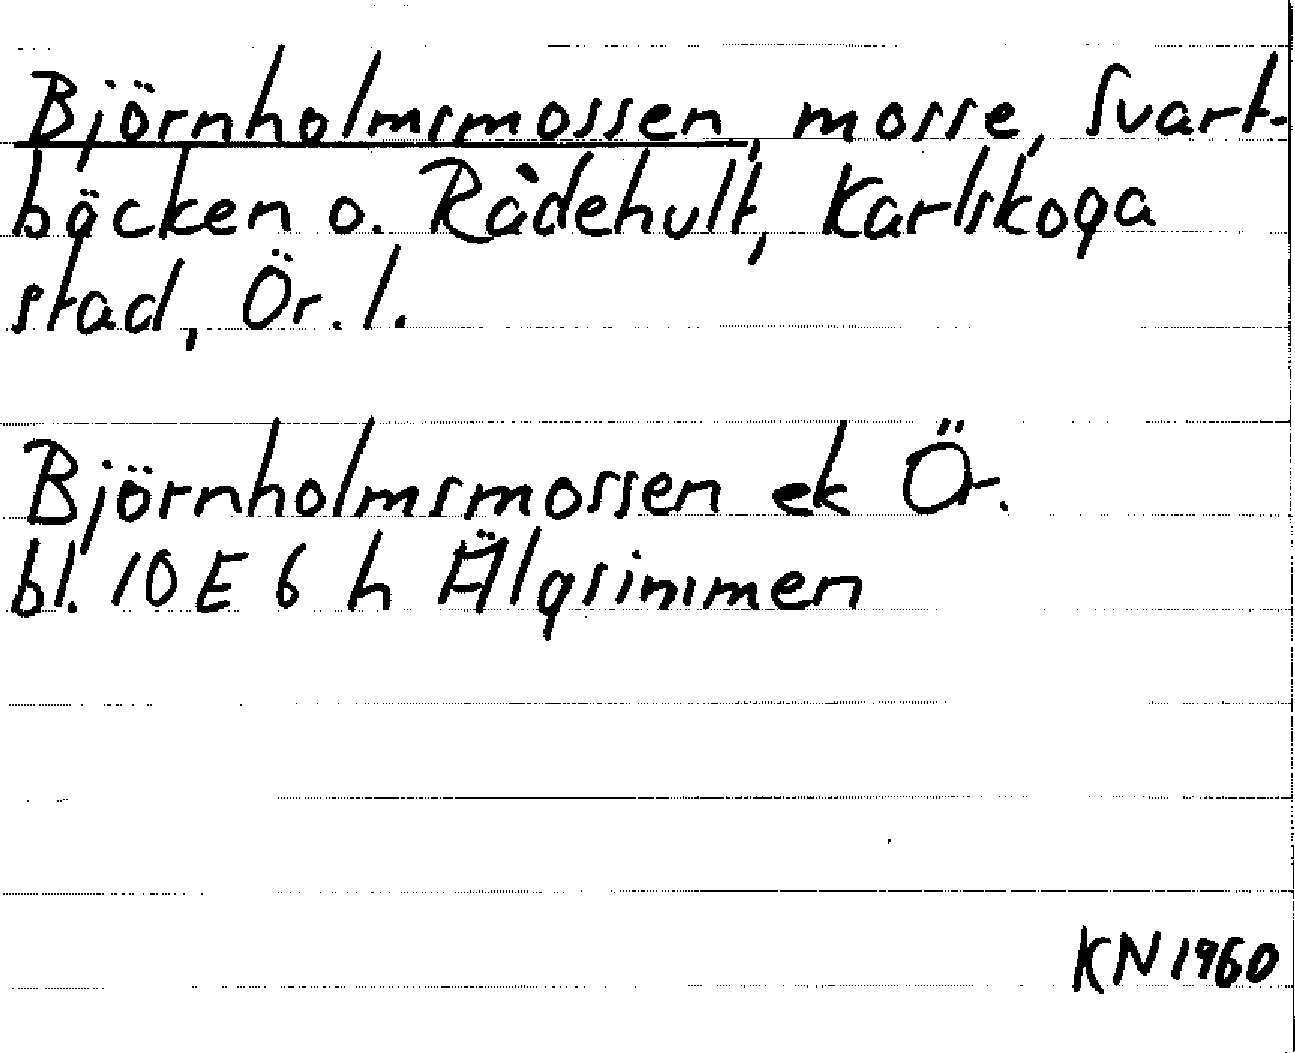 Björnholmsmossen, mosse, Svart-
bäcken o. Rådehult, Karlskoga
stad, Ör. l.
Björnholmsmossen ek Ö.
bl. 10 E 6 h Älgsimmen
KN 1960